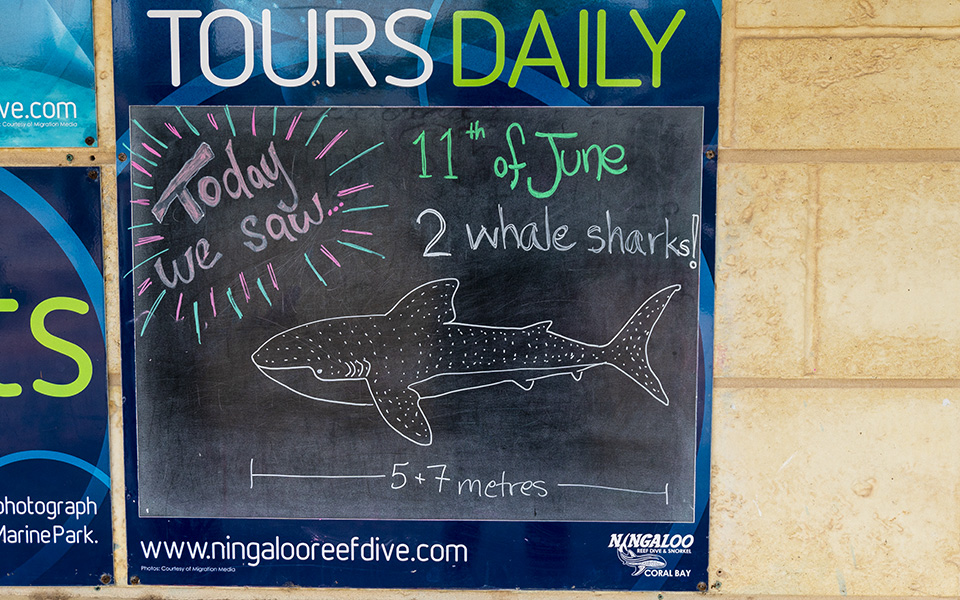 TOURS DAILY
ve.com
Courtesy of Migration Media
Today
we saw...
11th of June
2 whale sharks!
5 + 7 metres
ts
photograph
Marine Park.
www.ningalooreefdive.com
Photos: Courtesy of Migration Media
NINGALOO
REEF DIVE & SNORKEL
CORAL BAY